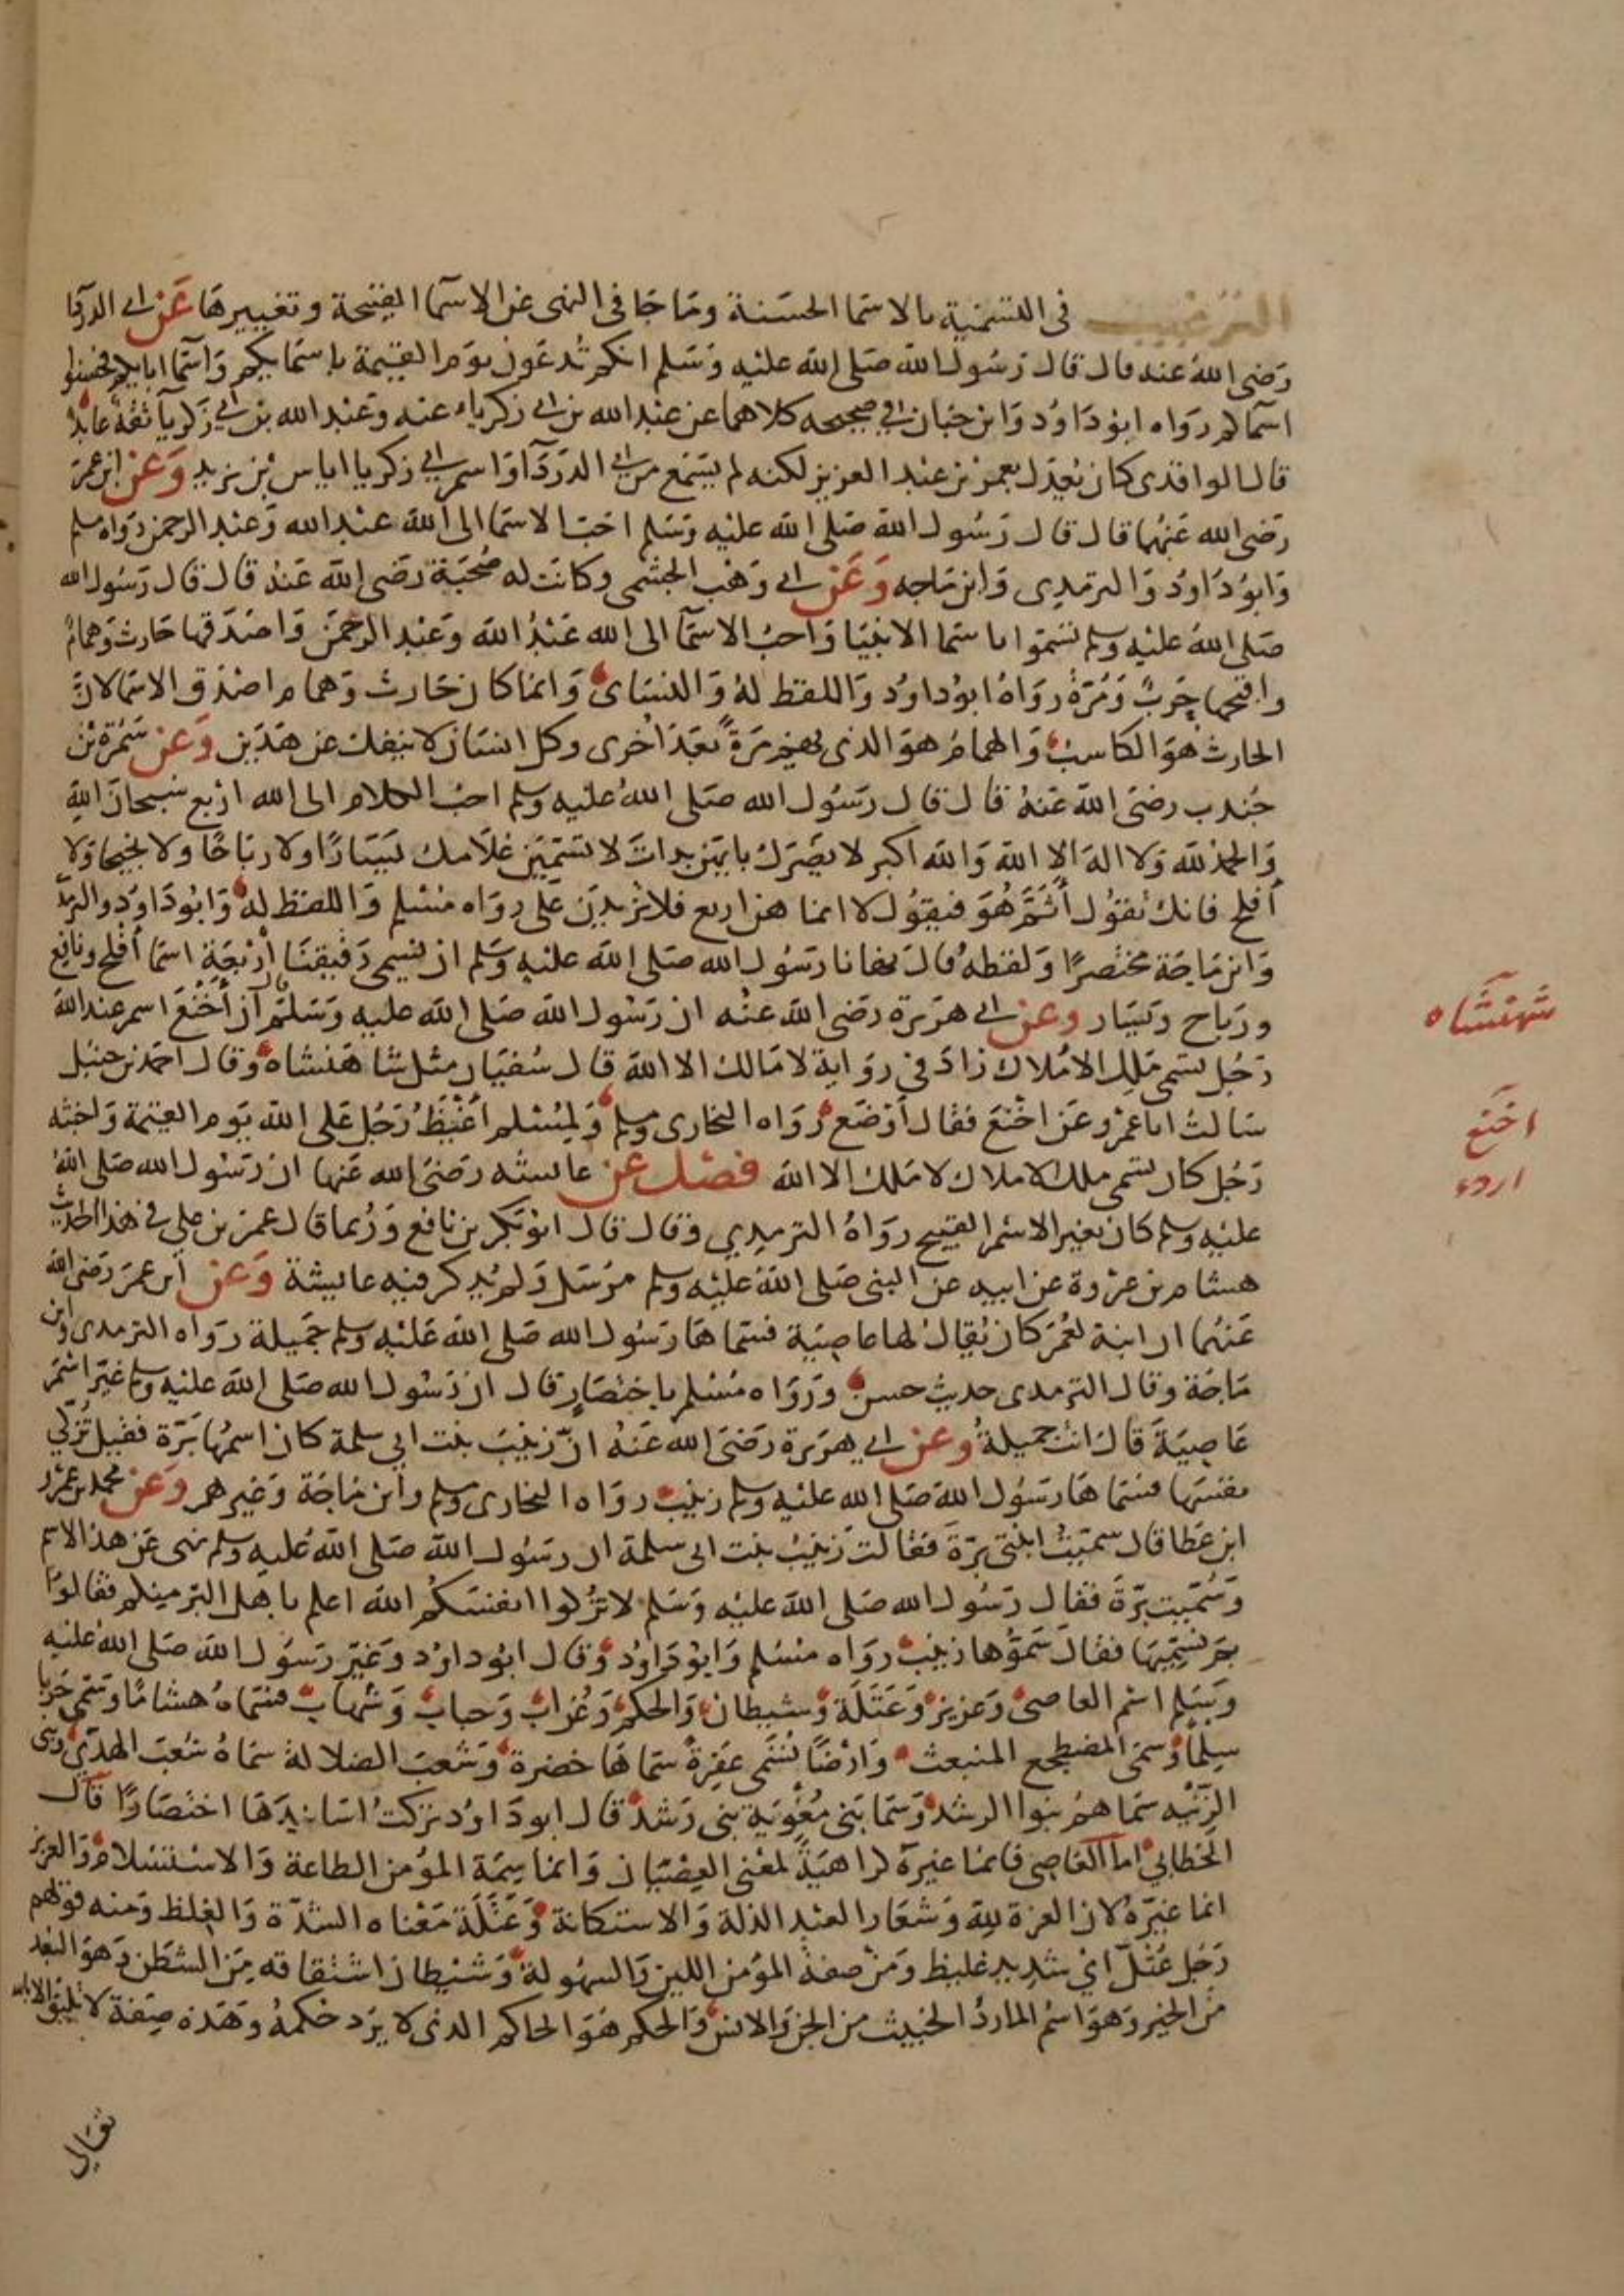 الترغيب في التسمية بالاسما الحسنة وما جا في النهي عن الاسما القبيحة وتغييرها عن ابي الدردا
رضي الله عنه قال قال رسول الله صلى الله عليه وسلم انكم تدعون يوم القيمة باسمايكم واسما ابايكم فحسنوا
اسماكم رواه ابو داود وابن حبان في صحيحه كلاهما عن عبد الله بن ابي زكرياء عنه وعبد الله بن ابي زكريا ثقة عابد
قال الواقدي كان يعدل بعمر بن عبد العزيز لكنه لم يسمع من ابي الدردآ واسم ابي زكريا اياس بن يزيد وعن ابن عمر
رضي الله عنهما قال قال رسول الله صلى الله عليه وسلم احب الاسما الى الله عبد الله وعبد الرحمن رواه مسلم
وابو داود والترمدي وابن ماجه وعن ابي وهب الجشمي وكانت له صحبة رضي الله عنه قال قال رسول الله
صلى الله عليه وسلم تسموا باسما الانبيا واحب الاسمآ الى الله عبد الله وعبد الرحمن واصدقها حارث وهمام
واقبحها حرب ومرة رواه ابو داود واللفظ له والنساي وانما كان حارث وهمام اصدق الاسما لان
الحارث هو الكاسب والهمام هو الذي يهم مرة بعد اخرى وكل انسان لا ينفك عن هذين وعن سمرة بن
جندب رضي الله عنه قال قال رسول الله صلى الله عليه وسلم احب الكلام الى الله اربع سبحان الله
والحمد لله ولا اله الا الله والله اكبر لا يضرك بايهن بدات لا تسمين غلامك يسارا ولا رباحا ولا نجيحا ولا
أفلح فانك تقول أثم هو فيقول لا انما هن اربع فلا تزيدن على رواه مسلم واللفظ له وابو داود والترمذي
وابن ماجة مختصرا ولفظه قال نهانا رسول الله صلى الله عليه وسلم ان نسمي رقيقنا أربعة اسما أفلح ونافع
ورباح ويسار وعن ابي هريرة رضي الله عنه ان رسول الله صلى الله عليه وسلم قال ان أخنع اسم عند الله
رجل تسمى ملك الاملاك زاد في رواية لا مالك الا الله قال سفيان مثل شاهنشاه وقال احمد بن حنبل
سالت ابا عمرو عن اخنع فقال أوضع رواه البخاري ومسلم ولمسلم اغيظ رجل على الله يوم القيمة واخبثه
رجل كان تسمى ملك الاملاك لا ملك الا الله فصل عن عايشه رضي الله عنها ان رسول الله صلى الله
عليه وسلم كان يغير الاسم القبيح رواه الترمدي وقال قال ابو بكر بن نافع وربما قال عمر بن علي في هذا الحديث
هشام بن عروة عن ابيه عن النبي صلى الله عليه وسلم مرسل ولم يذكر فيه عايشة وعن ابن عمر رضي الله
عنهما ان ابنة لعمر كان يقال لها عاصية فسماها رسول الله صلى الله عليه وسلم جميلة رواه الترمدي وابن
ماجة وقال الترمدي حديث حسن ورواه مسلم باختصار قال ان رسول الله صلى الله عليه وسلم غير اسم
عاصية قال انت جميلة وعن ابي هريرة رضي الله عنه ان زينب بنت ابي سلمة كان اسمها برة فقيل تزكي
نفسها فسماها رسول الله صلى الله عليه وسلم زينب رواه البخاري ومسلم وابن ماجة وغيرهم وعن محمد بن عمرو
ابن عطا قال سميت ابنتي برة فقالت زينب بنت ابي سلمة ان رسول الله صلى الله عليه وسلم نهى عن هذا الاسم
وسميت برة فقال رسول الله صلى الله عليه وسلم لا تزكوا انفسكم الله اعلم باهل البر منكم فقالوا
بم نسميها فقال سموها زينب رواه مسلم وابو داود وقال ابو داود وغير رسول الله صلى الله عليه
وسلم اسم العاصي وعزيز وعتلة وشيطان والحكم وغراب وحباب وشهاب فسماه هشاما وسمى حربا
سلما وسمى المضطجع المنبعث وارضا تسمى عفرة سماها خضرة وشعب الضلالة سماه شعب الهدى وبني
الزنيه سماهم بنوا الرشد وسما بني مغوية بني رشد قال ابو داود تركت اسانيدها اختصارا قال
الخطابي اما العاصي فانما غيره كراهية لمعنى العصيان وانما سمة المؤمن الطاعة والاستسلام والعزيز
انما غيره لان العزة لله وشعار العبد الذلة والاستكانة وعتلة معناه الشدة والغلظ ومنه قولهم
رجل عتل اي شديد غليظ ومن صفة المؤمن اللين والسهولة وشيطان اشتقاقه من الشطن وهو البعد
من الخير وهو اسم المارد الخبيث من الجن والانس والحكم هو الحاكم الذي لا يرد حكمه وهذه صفة لا تليق الا بالله
تعالى
شهنشاه
اخنع
اردء